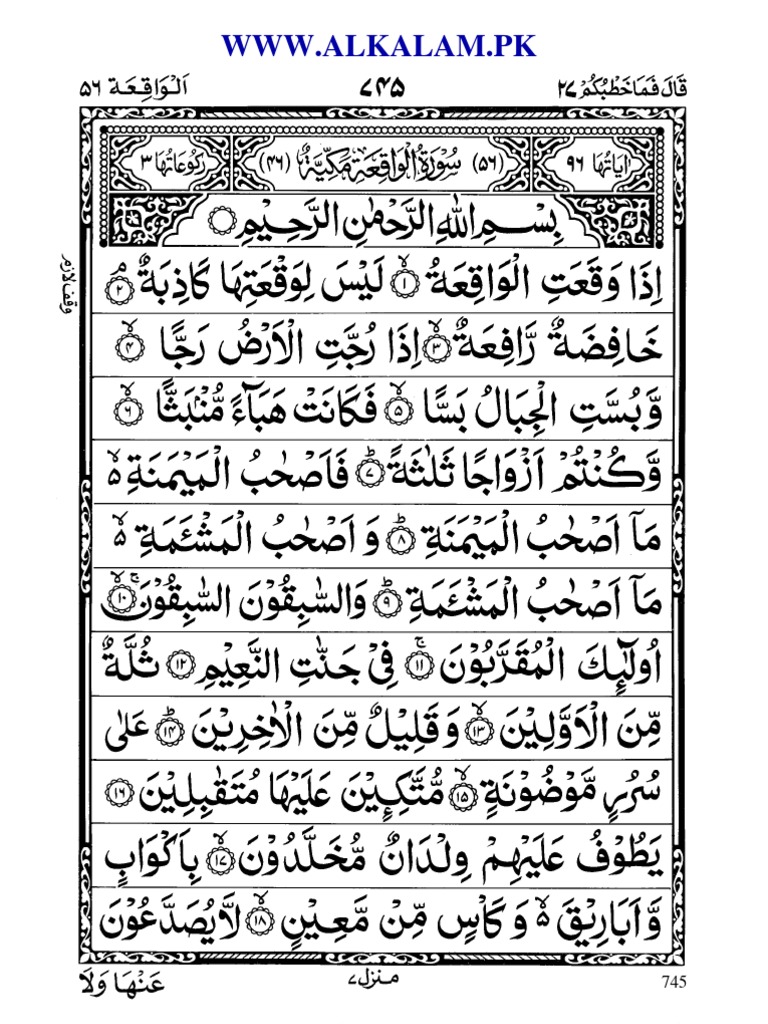 WWW.ALKALAM.PK
قَالَ فَمَا خَطْبُكُمْ ۲۷ ۷۴۵ اَلْوَاقِعَة ۵۶
اٰيَاتُهَا ۹۶ (۵۶) سُوْرَةُ الْوَاقِعَةِ مَكِّيَّةٌ (۴۶) رُكُوْعَاتُهَا ۳
بِسْمِ اللّٰهِ الرَّحْمٰنِ الرَّحِيْمِ
اِذَا وَقَعَتِ الْوَاقِعَةُ ۙ﴿۱﴾ لَيْسَ لِوَقْعَتِهَا كَاذِبَةٌ ۘ﴿۲﴾
وقف لازم
خَافِضَةٌ رَّافِعَةٌ ۙ﴿۳﴾ اِذَا رُجَّتِ الْاَرْضُ رَجًّا ۙ﴿۴﴾
وَّ بُسَّتِ الْجِبَالُ بَسًّا ۙ﴿۵﴾ فَكَانَتْ هَبَآءً مُّنْۢبَثًّا ۙ﴿۶﴾
وَّ كُنْتُمْ اَزْوَاجًا ثَلٰثَةً ؕ﴿۷﴾ فَاَصْحٰبُ الْمَيْمَنَةِ ۙ۬
مَاۤ اَصْحٰبُ الْمَيْمَنَةِ ؕ﴿۸﴾ وَ اَصْحٰبُ الْمَشْـَٔمَةِ ۙ۬
مَاۤ اَصْحٰبُ الْمَشْـَٔمَةِ ؕ﴿۹﴾ وَالسّٰبِقُوْنَ السّٰبِقُوْنَ ۚۙ﴿۱۰﴾
اُولٰٓئِكَ الْمُقَرَّبُوْنَ ۚ﴿۱۱﴾ فِيْ جَنّٰتِ النَّعِيْمِ ﴿۱۲﴾ ثُلَّةٌ
مِّنَ الْاَوَّلِيْنَ ۙ﴿۱۳﴾ وَ قَلِيْلٌ مِّنَ الْاٰخِرِيْنَ ؕ﴿۱۴﴾ عَلٰى
سُرُرٍ مَّوْضُوْنَةٍ ۙ﴿۱۵﴾ مُّتَّكِـِٕيْنَ عَلَيْهَا مُتَقٰبِلِيْنَ ﴿۱۶﴾
يَطُوْفُ عَلَيْهِمْ وِلْدَانٌ مُّخَلَّدُوْنَ ۙ﴿۱۷﴾ بِاَكْوَابٍ
وَّ اَبَارِيْقَ ۙ۬ وَ كَاْسٍ مِّنْ مَّعِيْنٍ ۙ﴿۱۸﴾ لَّا يُصَدَّعُوْنَ
عَنْهَا وَلَا منزل ۷ 745